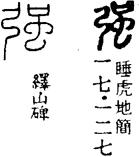 强
睡虎地簡
一七·一二七
强
繹山碑